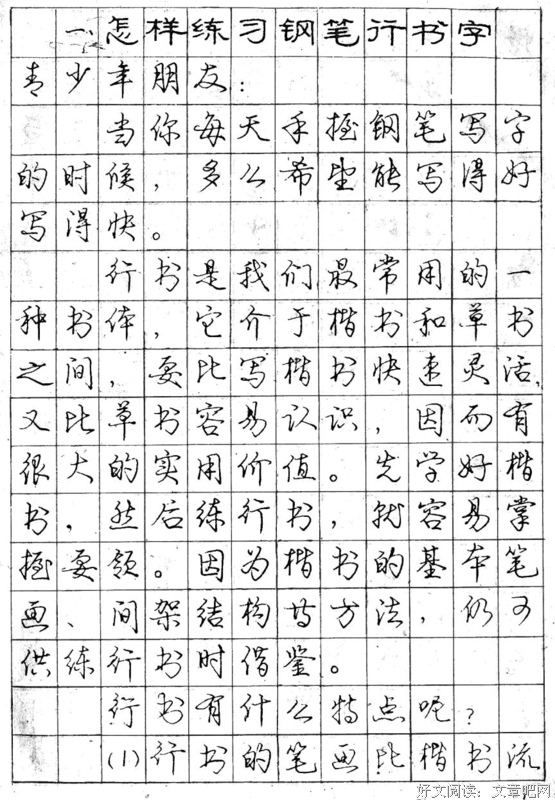 一、怎样练习钢笔行书字
青少年朋友：
当你每天手握钢笔写字
的时候，多么希望能写得好
写得快。
行书是我们最常用的一
种书体，它介于楷书和草书
之间，要比写楷书快速灵活，
又比草书容易认识，因而有
很大的实用价值。先学好楷
书，然后练行书，就容易掌
握要领。因为楷书的基本笔
画、间架结构等方法，仍可
供练行书时借鉴。
行书有什么特点呢？
(1)行书的笔画比楷书流
好文阅读：文章吧网